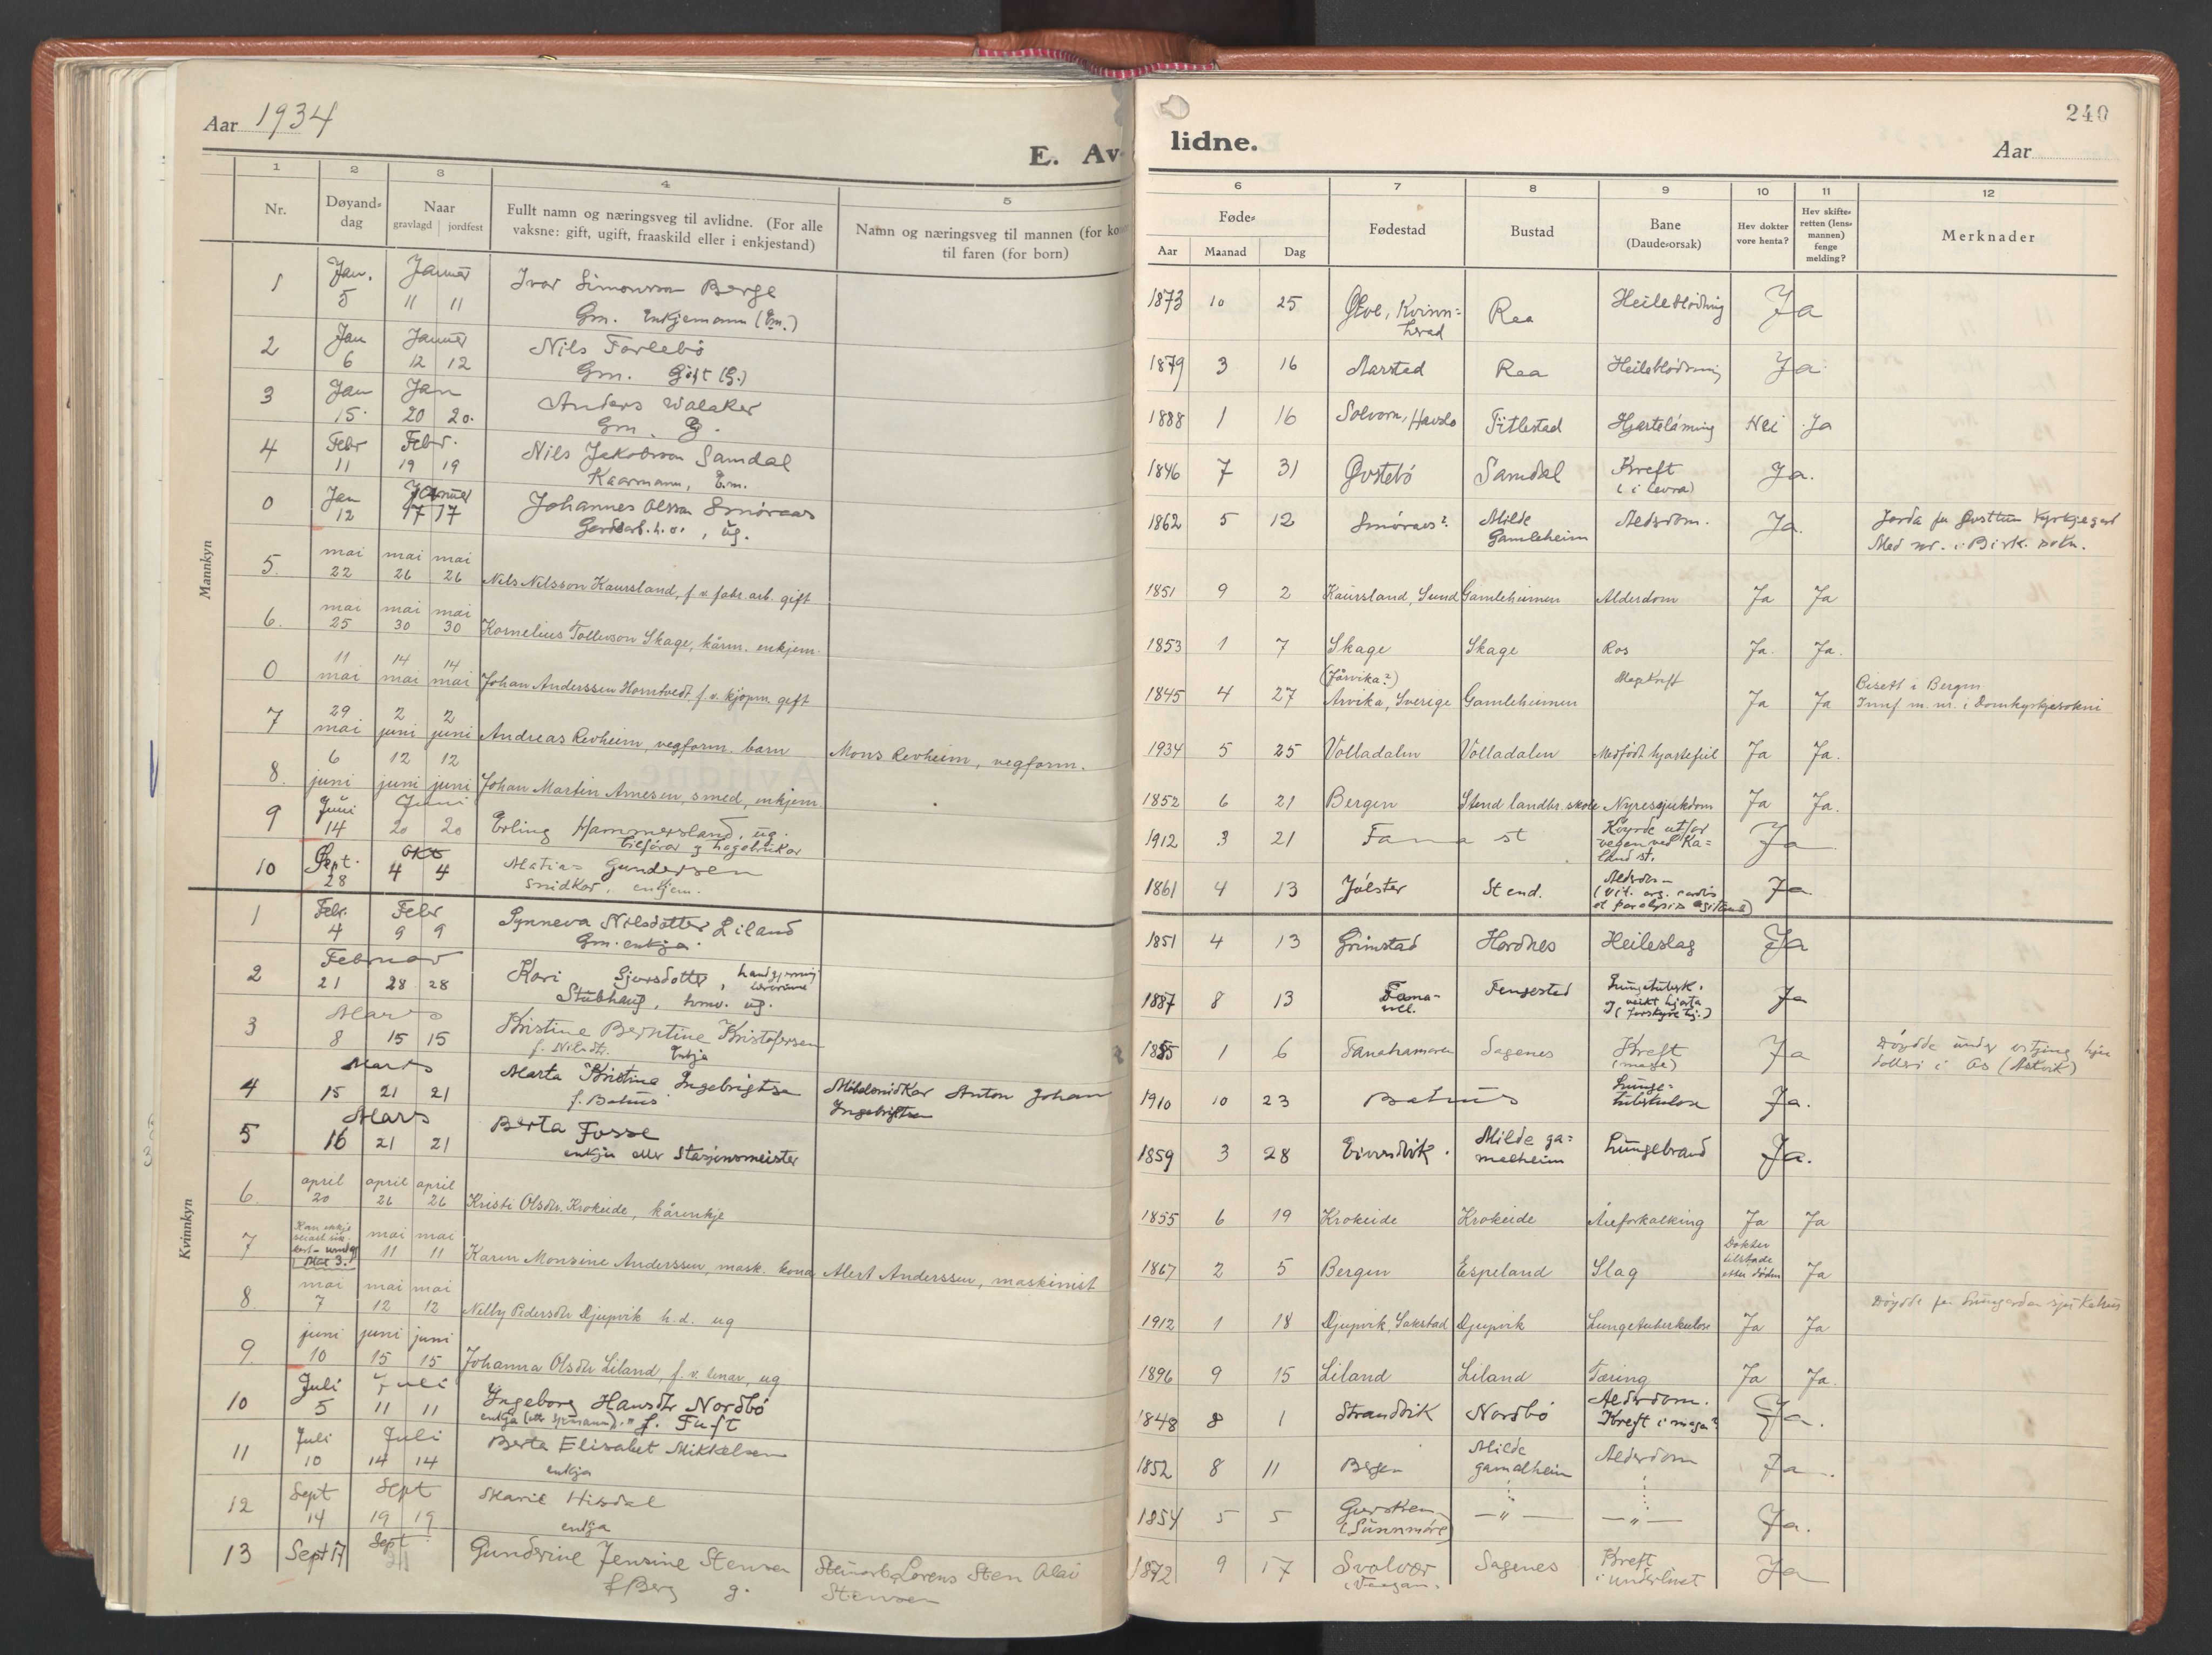 Aar 1934
E. Av-
1 2 3 4 5
Nr.
Døyand-
dag
Naar
gravlagd jordfest
Fullt namn og næringsveg til avlidne. (For alle
vaksne: gift, ugift, fraaskild eller i enkjestand)
Namn og næringsveg til mannen (for
til faren (for born)
Mannkyn
1 Jan. 5 Januar 11 11 Ivar Simonsson Berge
Gm. Enkjemann (Em.)
2 Jan 6 Januar 12 12 Nils Farlebø
Gm. Gift (G.)
3 Jan 15. Jan 20 20. Anders Walaker
Gm. G.
4 Febr 11 Febr. 19 19 Nils Jakobsson Samdal
Kaarmann, Em.
0 Jan 12 Januar 17 17 Johannes Olsson Smøraas
Gardsarb. h.v., ug.
5. mai 22 mai 26 mai 26 Nils Nilsson Kaursland, f.v. fabr.arb. gift
6. mai 25 mai 30 mai 30 Kornelius Tollevson Skage, kårm. enkjem.
0 11 mai 14 mai 14 mai Johan Anderssen Homtvedt f.v. kjøpm. gift
7 29 mai 2 juni 2 juni Andreas Revheim, vegform. barn Mons Revheim, vegform.
8. 6 juni 12 juni 12 juni Johan Martin Arnesen, smed, enkjem.
9 Juni 14 Juni 20 20 Erling Hammersland, ug.
bilførar og hagebrukar
10 Sept. 28 Okt 4 4 Matias Gundersen
Snidkar, enkjem.
Kvinnkyn
1 Febr. 4 Febr 9 9 Synneva Nilsdotter Liland
Gm. enkja.
2 Februar 21 28 28 Kari Gjersdotter, handgjerning
lærerinne
Stubhaug, hmv. ug.
3 Mars 8 15 15 Kristine Berntine Kristofersen
f. Nilsdtr. Enkja
4 Mars 15 21 21 Marta Kristina Ingebrigtsen Møbelsnidkar Anton Johan
f. Bahus Ingebrigtsen
5 Mars 16 21 21 Berta Fosse
enkja etter Stasjonsmeister
6. april 20 april 26 april 26 Kristi Olsdtr. Krokeide, kårenkje
7 Mai 3. mai 11 mai 11 Karen Monsine Anderssen, mask. kona Alert Anderssen, maskinist
8. mai 7 mai 12 mai 12 Nelly Pedersdtr Djupvik h.d. ug
9. juni 10 juni 15 juni 15 Johanna Olsdtr Liland, f.v. lenar, ug
10 Juli 5 Juli 11 11 Ingeborg Hansdtr Nordbø
f. Tuft
11 Juli 10 Juli 14 14 Berta Elisabet Mikkelsen
enkja
12 Sept 14 Sept 19 19 Marie Hisdal
enkja
13 Sept 17 Sept Gunderine Jensine Stensen Lorens Sten Olai
f Berg g. Stensen
240
lidne.
Aar
6 7 8 9 10 11 12
Føde-
Aar Maanad Dag
Fødestad
Bustad
Bane
(Daude-orsak)
Hev dokter
vore henta?
Hev skifte-
retten (lens-
mannen)
fenge
melding?
Merknader
1873 10 25 Ølve, Kvinn=
herad Rea Heilebløding Ja
1879 3 16 Aarstad Rea Heilebløding Ja
1888 1 16 Solvorn, Havslo Titlestad Hjartelåming Nei Ja
1846 7 31 Øvstebø Samdal Kreft
(i levra) Ja.
1862 5 12 Smøraas? Milde
Gamleheim Aldrdom. Ja. Jorda på Øvsttun Kyrkjegard
Med nr. i Birk. sokn.
1851 9 2 Kaursland, Sund Gamleheimen Alderdom Ja Ja
1853 1 7 Skage Skage Ros Ja. Ja.
1845 4 27 (Jårvika?)
Arvika, Sverige Gamleheimen Magekreft Ja Ja Bisett i Bergen
Innf m. nr. i Domkyrkjesokni
1934 5 25 Volladalen Volladalen Medfødt hjartefeil Ja Ja.
1852 6 21 Bergen Stend landbr. skole Nyresjukdom Ja Ja.
1912 3 21 Fana st Køyrde utfor
vegen ved Ka=
land st. Ja
1861 4 13 Jølster Stend. Alderdom
(Vit. org. cordis
et paralysis agitans) Ja
1851 4 13 Grimstad Hordnes Heileslag Ja
1887 8 13 Fana- Fengestad Lungetuberk.
og veikt hjarta Ja
1855 1 6 Fanahamaren Sagenes Kreft
(mage) Ja Døydde under vitjing hjå
dotteri i Os (Askvik)
1910 10 23 Bahus Lunge=
tuberkulose Ja.
1859 3 28 Eivindvik. Milde ga=
maleheim Lungebrand Ja.
1855 6 19 Krokeide Krokeide Åreforkalking Ja Ja
1867 2 5 Bergen Espeland Slag Dokter
tilstade
etter døden Ja
1912 1 18 Djupvik, Samstad Djupvik Lungetuberkulose Ja Ja Døydde på Lungegarden sjuKehus
1896 9 15 Liland Liland Tæring Ja Ja.
1848 8 1 Strandvik Nordbø Alderdom.
Kreft i maga? Ja.
1852 8 11 Bergen Milde
gamalheim Alderdom Ja.
1854 5 5 Gursken
(Sunnmøre) —"— —"— Ja.
1872 9 17 Svolvær
i Vaagan. Sagenes Kreft
i underlivet Ja